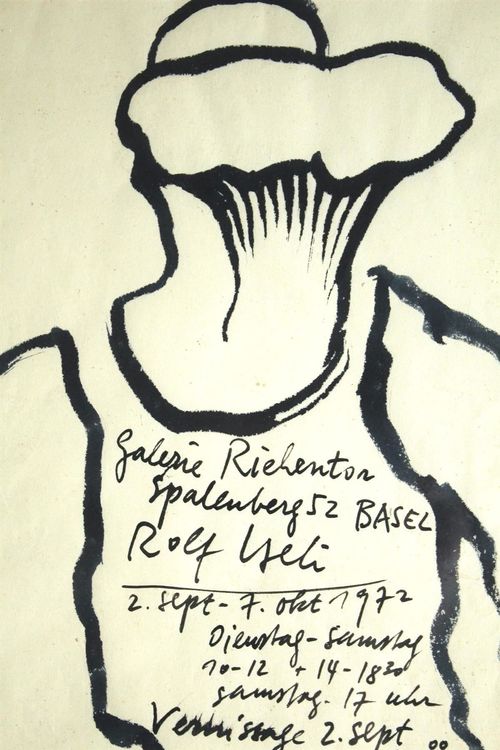 Galerie Riehentor
Spalenberg 52 BASEL
Rolf Iseli
2. Sept - 7. okt 1972
Dienstag - Samstag
10-12 + 14-18³⁰
Samstag. 17 uhr
Vernissage 2. Sept